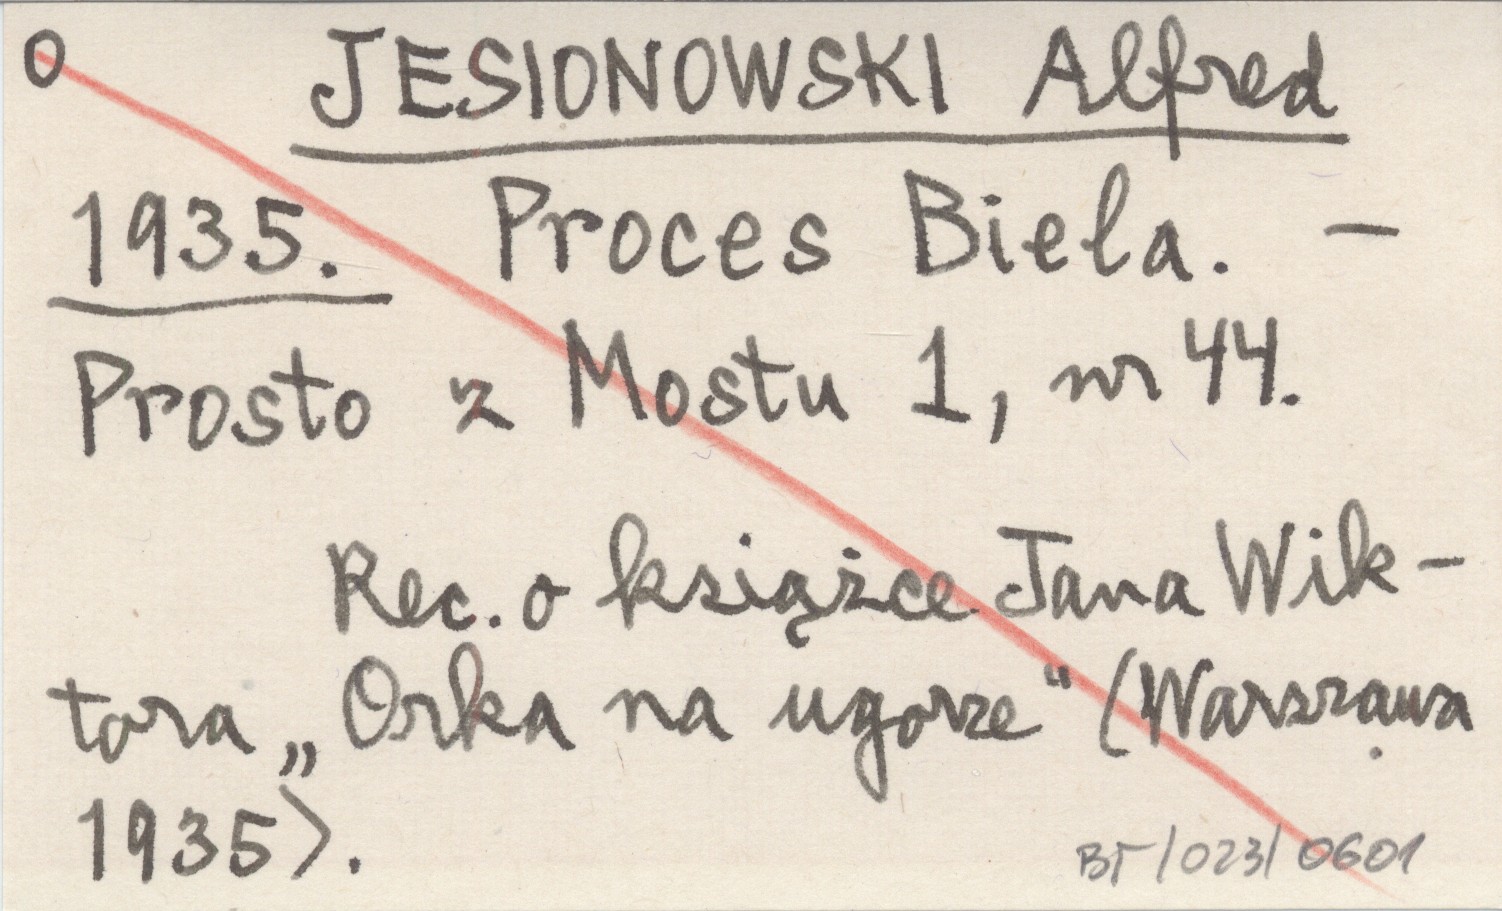 O JESIONOWSKI Alfred
1935. Proces Biela. -
Prosto z Mostu 1, nr 44.
Rec. o książce Jana Wik-
tora „Orka na ugorze" (Warszawa
1935).
BF/023/0601